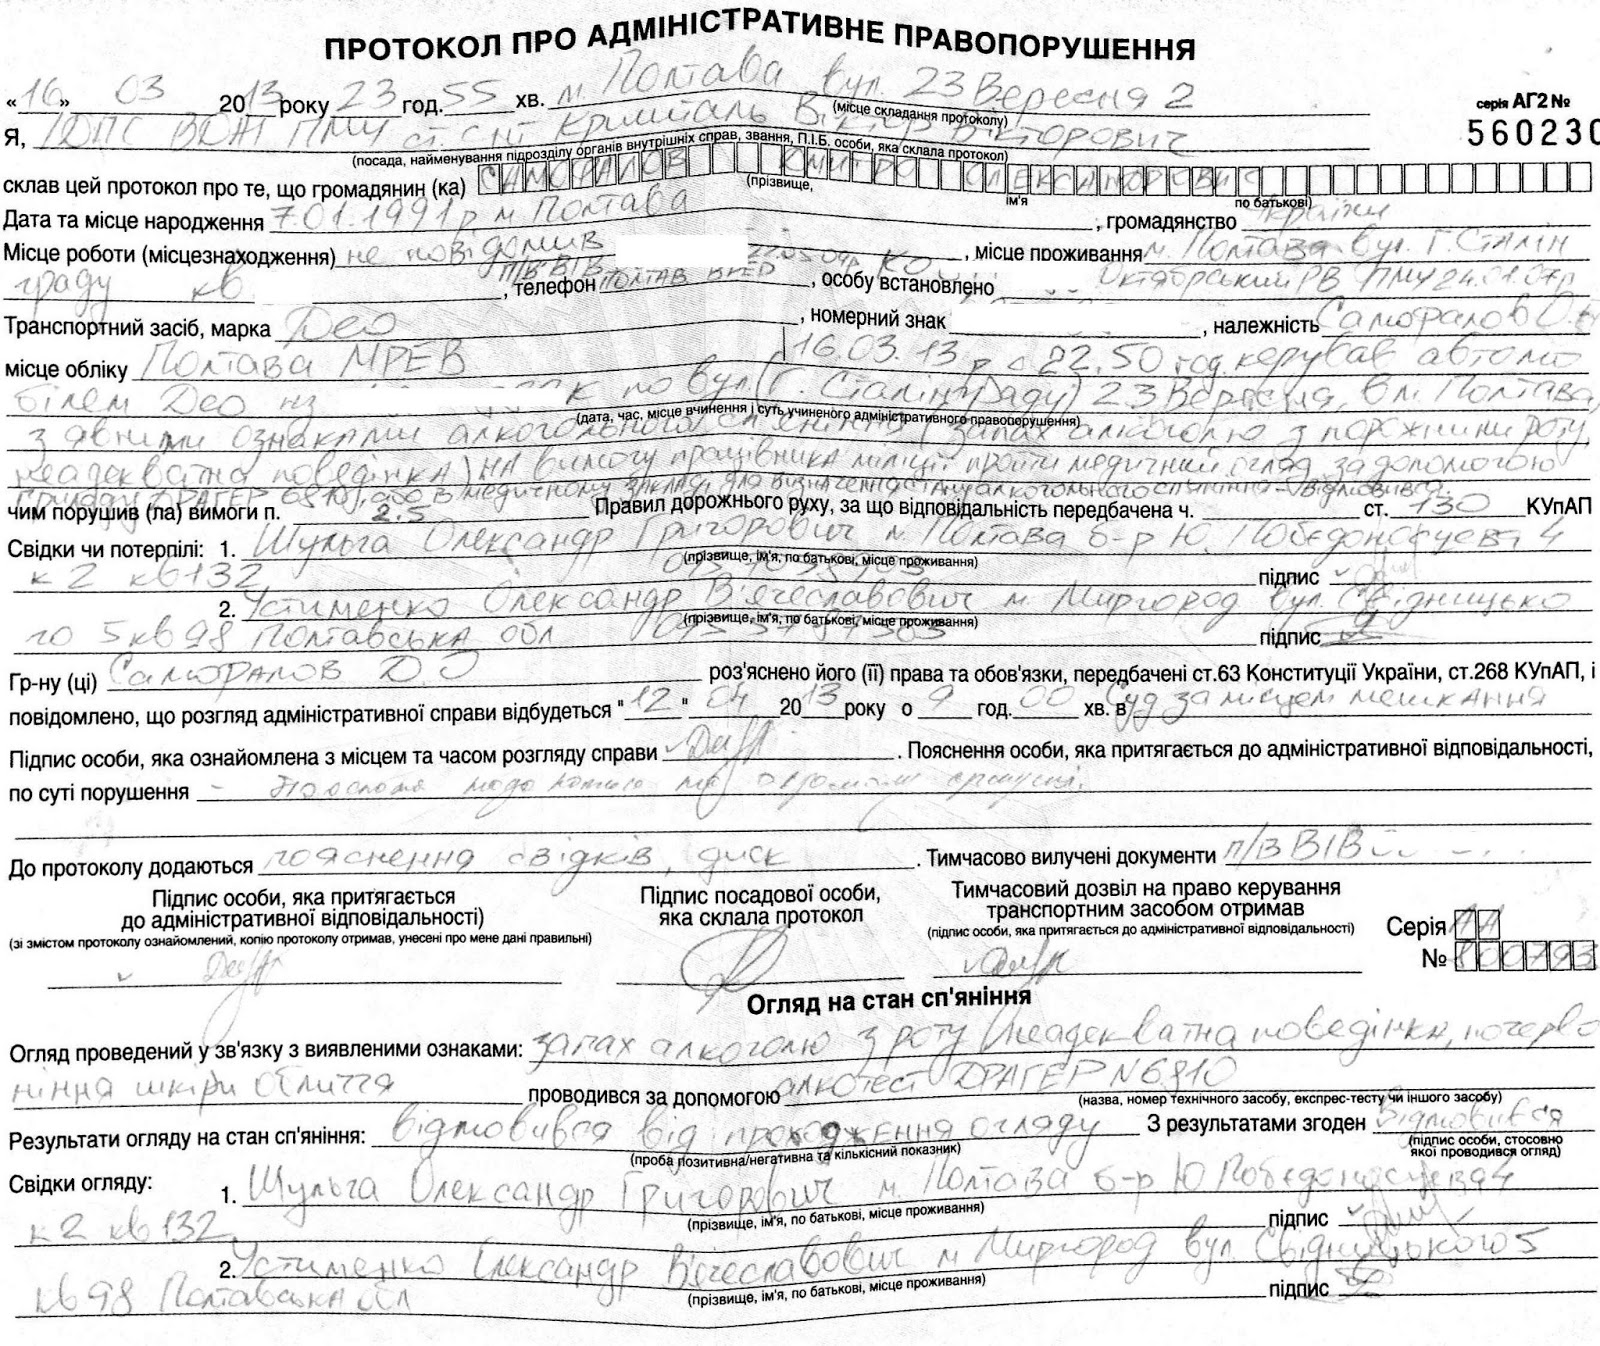 ПРОТОКОЛ ПРО АДМІНІСТРАТИВНЕ ПРАВОПОРУШЕННЯ
«16» 03 2013 року 23 год. 55 хв. м. Полтава вул. 23 Вересня 2
(місце складання протоколу)
серія АГ2 №
560230
Я, ІДПС ВДЖ ПМУ ст. с-нт Віктор Вікторович
(посада, найменування підрозділу органів внутрішніх справ, звання, П.І.Б. особи, яка склала протокол)
склав цей протокол про те, що громадянин (ка) САМОФАЛОВ ДМИТРО ОЛЕКСАНДРОВИЧ
(прізвище, ім'я по батькові)
Дата та місце народження 7.01.1991р м. Полтава, громадянство України
Місце роботи (місцезнаходження) не повідомив, місце проживання м. Полтава вул. Г. Сталін
граду кв, телефон, особу встановлено п/в ВІВ 22.05.09р Полтав ВРЕР Октябрський РВ ПМУ 24.01.07р
Транспортний засіб, марка Део, номерний знак, належність Самофалов О.
місце обліку Полтава МРЕВ 16.03.13 р о 22.50 год. керував автомо
білем Део нз К по вул. (Г. Сталінграду) 23 Вересня, в м. Полтава,
(дата, час, місце вчинення і суть учиненого адміністративного правопорушення)
з явними ознаками алкогольного сп'яніння (запах алкоголю з порожнини роту,
неадекватна поведінка) на вимогу працівника міліції пройти медичний огляд за допомогою
приладу ДРАГЕР 6810, або в медичному закладі для визначення стану алкогольного сп'яніння - відмовився
чим порушив (ла) вимоги п. 2.5 Правил дорожнього руху, за що відповідальність передбачена ч. ст. 130 КУпАП
Свідки чи потерпілі: 1. Шульга Олександр Григорович м. Полтава б-р Ю. Побєдоносцева 4
(прізвище, ім'я, по батькові, місце проживання)
к 2 кв 132 підпис
2. Устименко Олександр В'ячеславович м. Миргород вул. Свідницько
(прізвище, ім'я, по батькові, місце проживання)
го 5 кв 98 Полтавська обл підпис
Гр-ну (ці) Самофалов Д.О роз'яснено його (її) права та обов'язки, передбачені ст.63 Конституції України, ст.268 КУпАП, і
повідомлено, що розгляд адміністративної справи відбудеться "12" 04 2013 року о 9 год. 00 хв. в Суд за місцем мешкання
Підпис особи, яка ознайомлена з місцем та часом розгляду справи . Пояснення особи, яка притягається до адміністративної відповідальності,
по суті порушення -
До протоколу додаються пояснення свідків, диск. Тимчасово вилучені документи п/в ВІВ
Підпис особи, яка притягається
до адміністративної відповідальності)
(зі змістом протоколу ознайомлений, копію протоколу отримав, унесені про мене дані правильні)
Підпис посадової особи,
яка склала протокол
Тимчасовий дозвіл на право керування
транспортним засобом отримав
(підпис особи, яка притягається до адміністративної відповідальності)
Серія АА
№ 800793
Огляд на стан сп'яніння
Огляд проведений у зв'язку з виявленими ознаками: запах алкоголю з роту, неадекватна поведінка, почерво
ніння шкіри обличчя проводився за допомогою алкотест ДРАГЕР N6810
(назва, номер технічного засобу, експрес-тесту чи іншого засобу)
Результати огляду на стан сп'яніння: відмовився від проходження огляду З результатами згоден відмовився
(проба позитивна/негативна та кількісний показник)
(підпис особи, стосовно
якої проводився огляд)
Свідки огляду:
1. Шульга Олександр Григорович м. Полтава б-р Ю Побєдоносцева 4
(прізвище, ім'я, по батькові, місце проживання)
к 2 кв 132 підпис
2. Устименко Олександр В'ячеславович м Миргород вул. Свідницького 5
(прізвище, ім'я, по батькові, місце проживання)
кв 98 Полтавська обл підпис